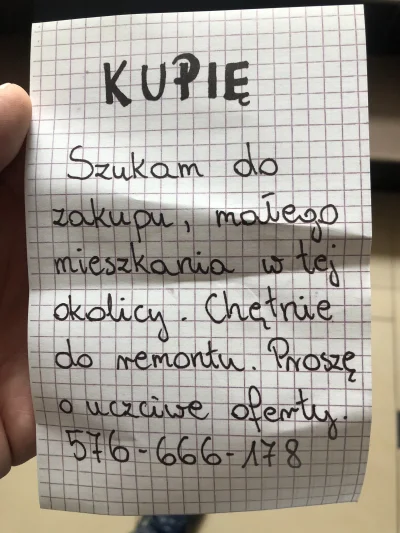 KUPIĘ
Szukam do
zakupu, małego
mieszkania w tej
okolicy. Chętnie
do remontu. Proszę
o uczciwe oferty.
576-666-178